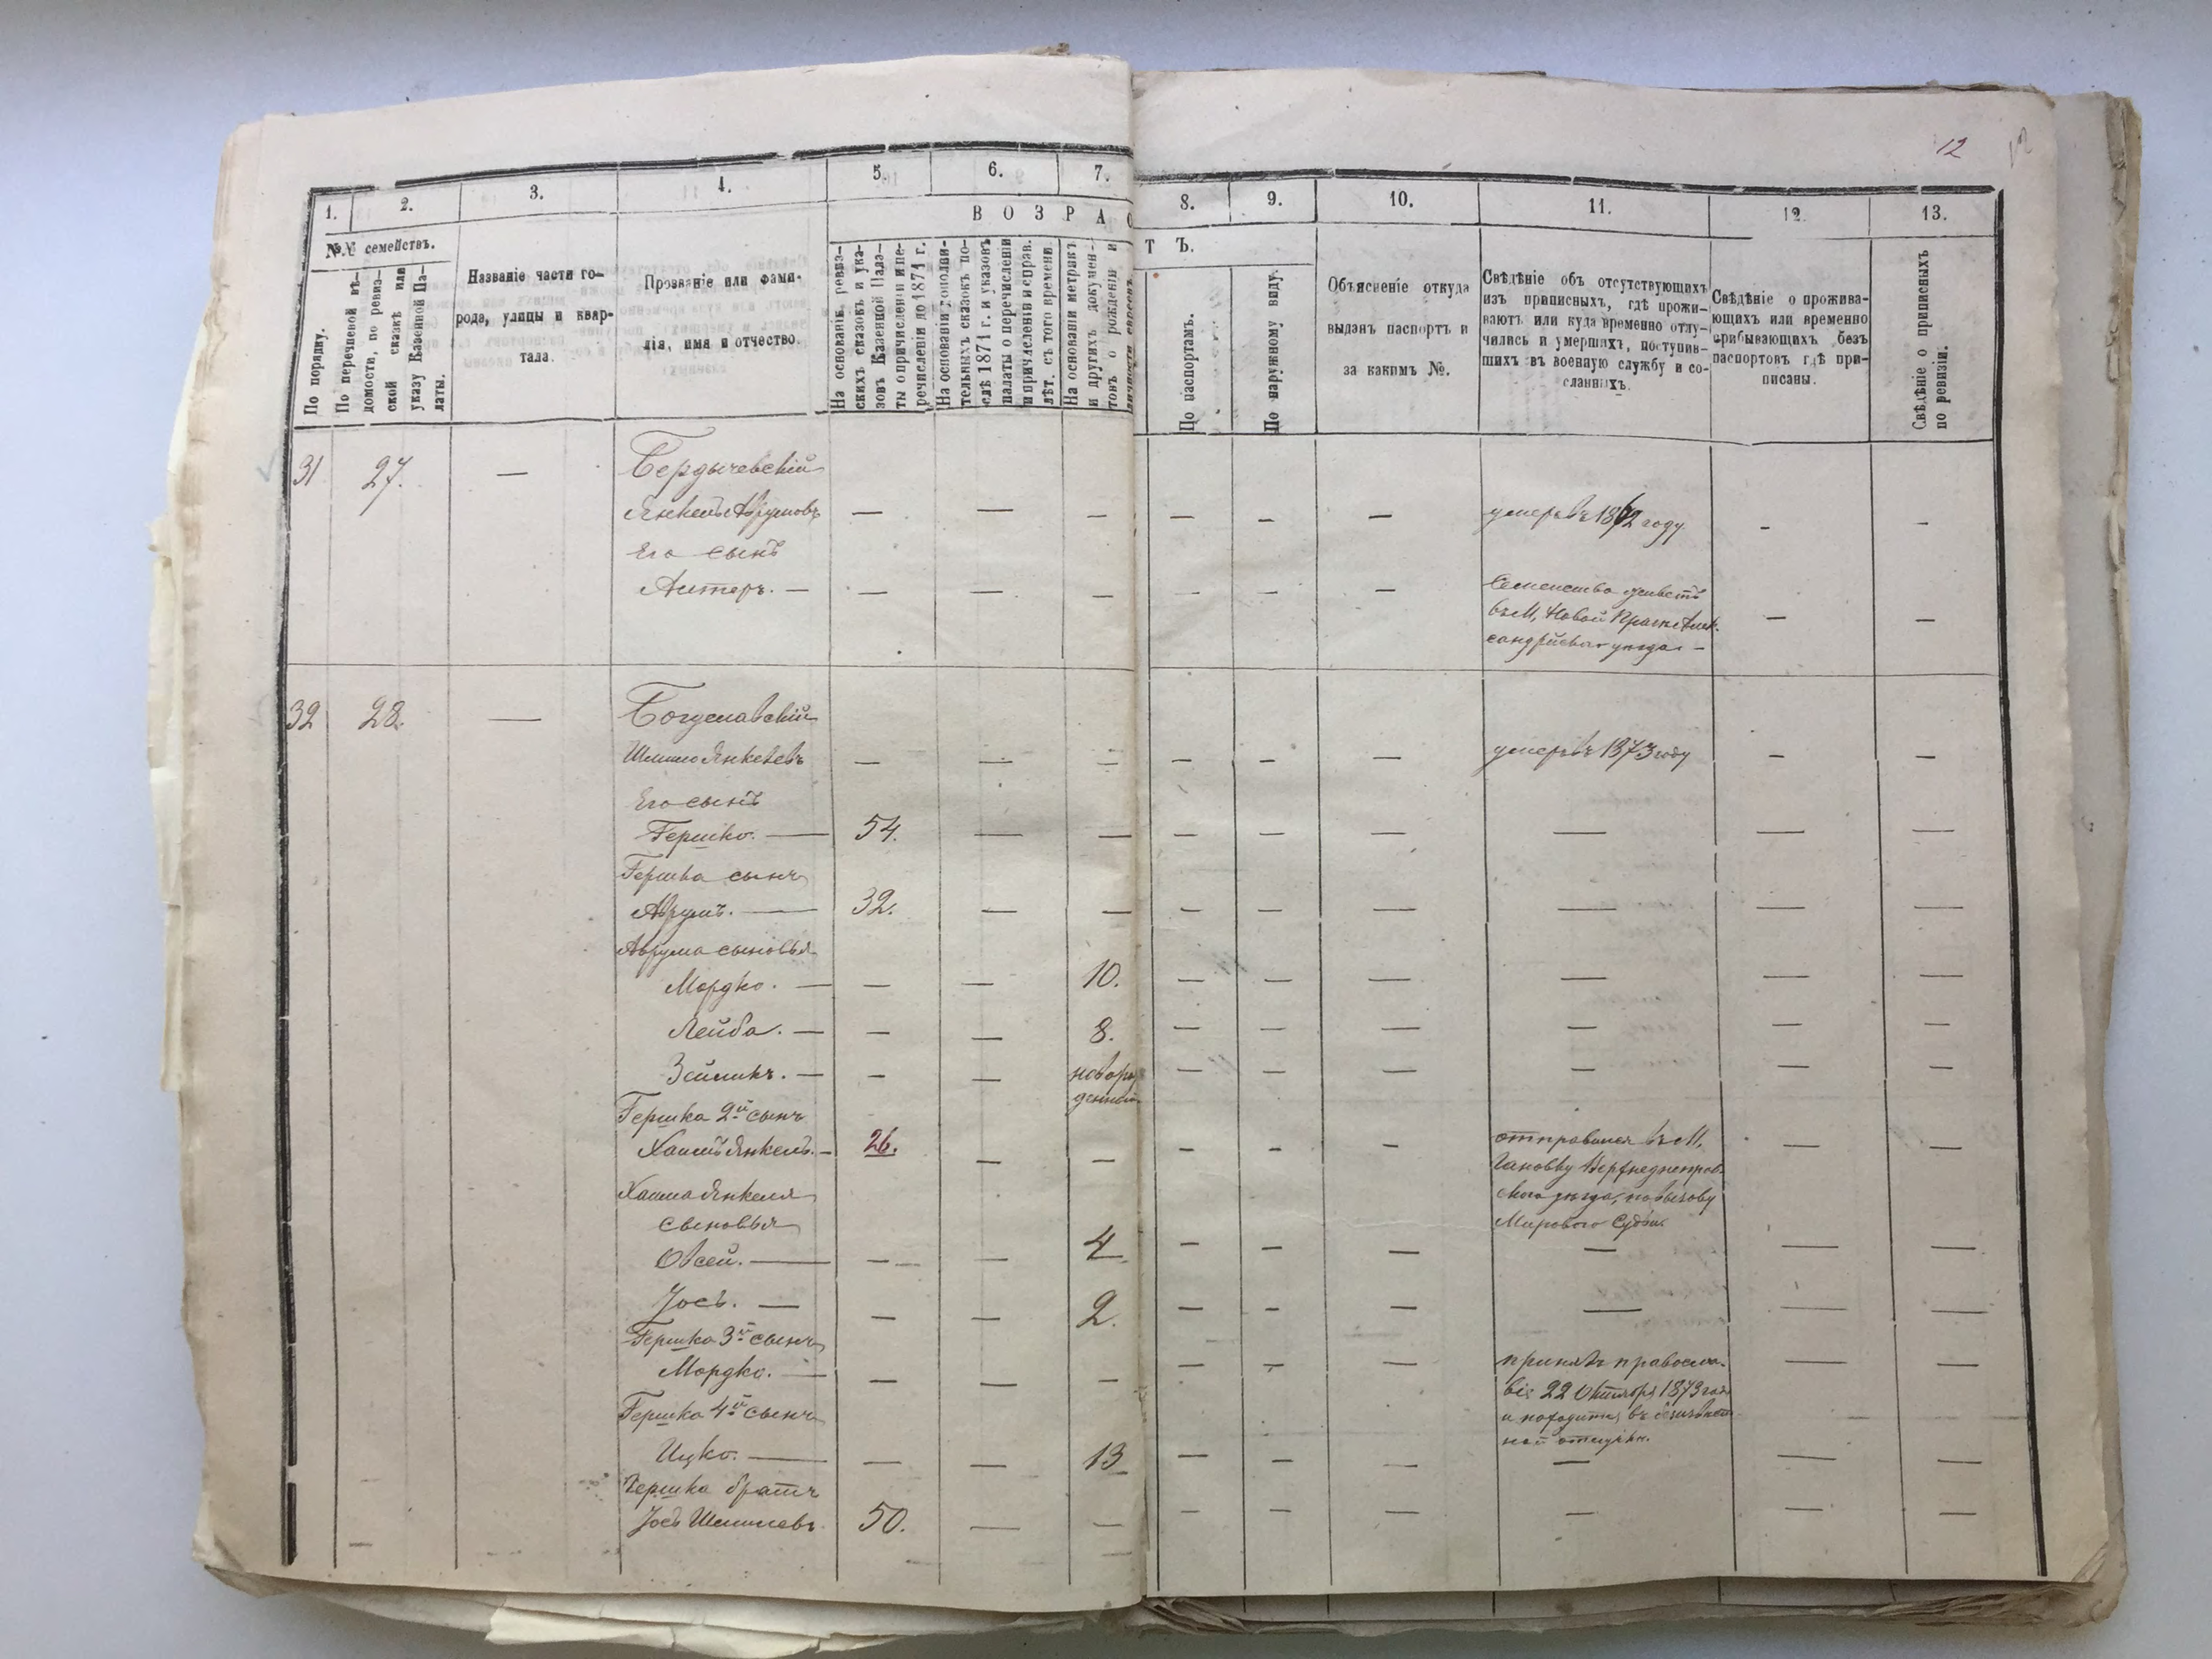 12
1.
2.
3.
4.
5.
6.
7.
8.
9.
10.
11.
12.
13.
В О З Р А С
Т Ъ.
№№ семействъ.
По порядку.
По перечневой вѣ-
домости, по ревиз-
ской сказкѣ или
указу Казенной Па-
латы.
Названіе части го-
рода, улицы и квар-
тала.
Прозваніе или фами-
лія, имя и отчество.
На основаніи ревиз-
скихъ сказокъ и ука-
зовъ Казенной Пала-
ты о причисленіи и пе-
речисленіи до 1871 г.
На основаніи дополни-
тельныхъ сказокъ по-
слѣ 1871 г. и указовъ
палаты о перечисленіи
и причисленіи и справ.
лѣт. съ того времени.
На основаніи метрикъ
и другихъ докумен-
товъ о рожденіи и
По паспортамъ.
По наружному виду.
Объясненіе откуда
выданъ паспортъ и
за какимъ №.
Свѣдѣніе объ отсутствующихъ
изъ приписныхъ, гдѣ прожи-
ваютъ или куда временно отлу-
чились и умершихъ, поступив-
шихъ въ военную службу и со-
сланныхъ.
Свѣдѣніе о прожива-
ющихъ или временно
прибывающихъ безъ
паспортовъ гдѣ при-
писаны.
Свѣдѣніе о приписныхъ
по ревизіи.
31 27. — Бердычевскій
Янкель Аврумовъ — — — — — — умеръ въ 1872 году — —
Его сынъ
Лейзеръ. — — — — — — — Семейство живетъ — —
въ М. Новой Прагѣ Алек-
сандрійскаго уѣзда —
32 28. — Богуславскій
Шлиомо Янкелевъ — — — — — — умеръ въ 1873 году — —
Его сынъ
Гершко. — 54. — — — — — — — —
Гершка сынъ
Аврумъ. — 32. — — — — — — — —
Аврума сыновья
Мордко. — — — 10. — — — — — —
Лейба. — — — 8. — — — — — —
Зейликъ. — — — новорож — — — — — —
денный
Гершка 2й сынъ
Хаимъ Янкель. — 26. — — — — — отправился въ М. — —
Верхнеднепров-
скаго уѣзда, по вызову
Мирового Судьи.
Хаима Янкеля
сыновья
Овсей. — — — 4 — — — — — —
Іось. — — — 2. — — — — — —
Гершка 3й сынъ
Мордко. — — — — — — — принялъ правосла- — —
віе 22 Октября 1873 года
и находится въ безизвѣст-
ной отлучкѣ.
Гершка 4й сынъ
Ицко. — — — 13 — — — — — —
Гершка братъ
Іось Шлиомовъ 50. — — — — — — — —